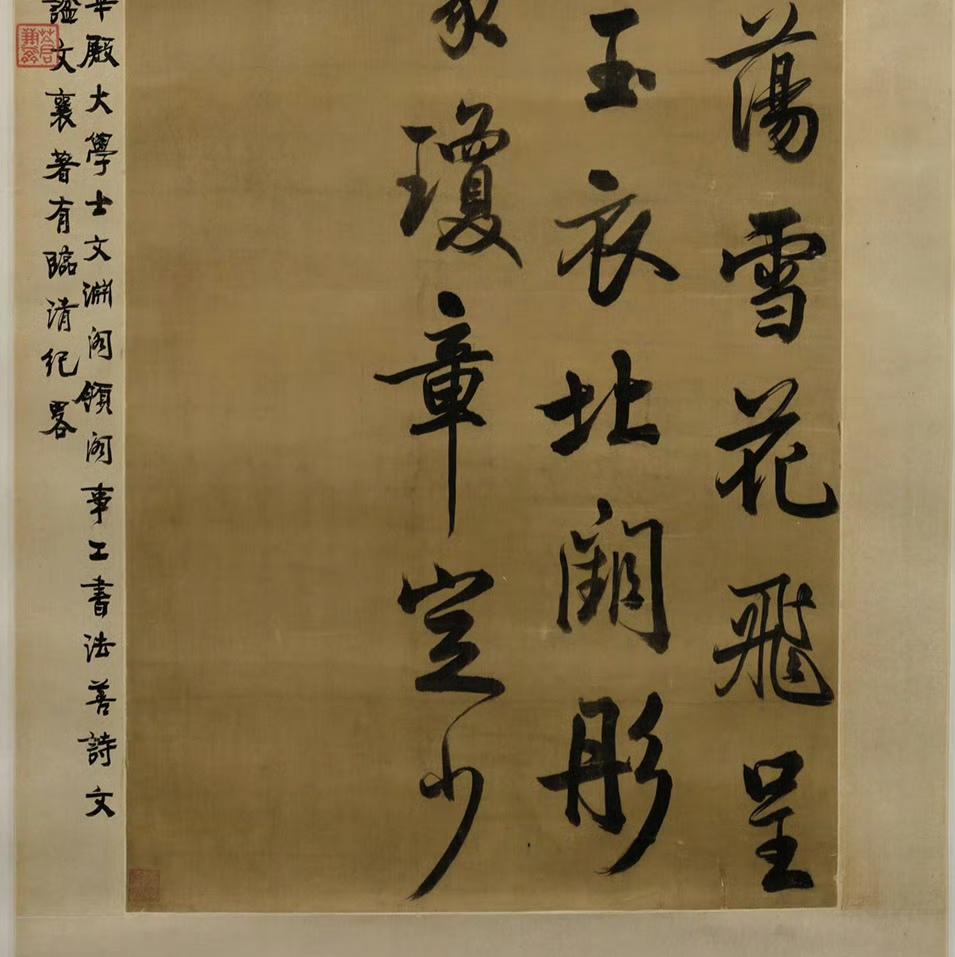 蕩雪花飛呈
玉衣北闕彤
瓊章定少
華殿大學士文淵阁領阁事工書法善詩文
諡文襄著有臨清紀畧